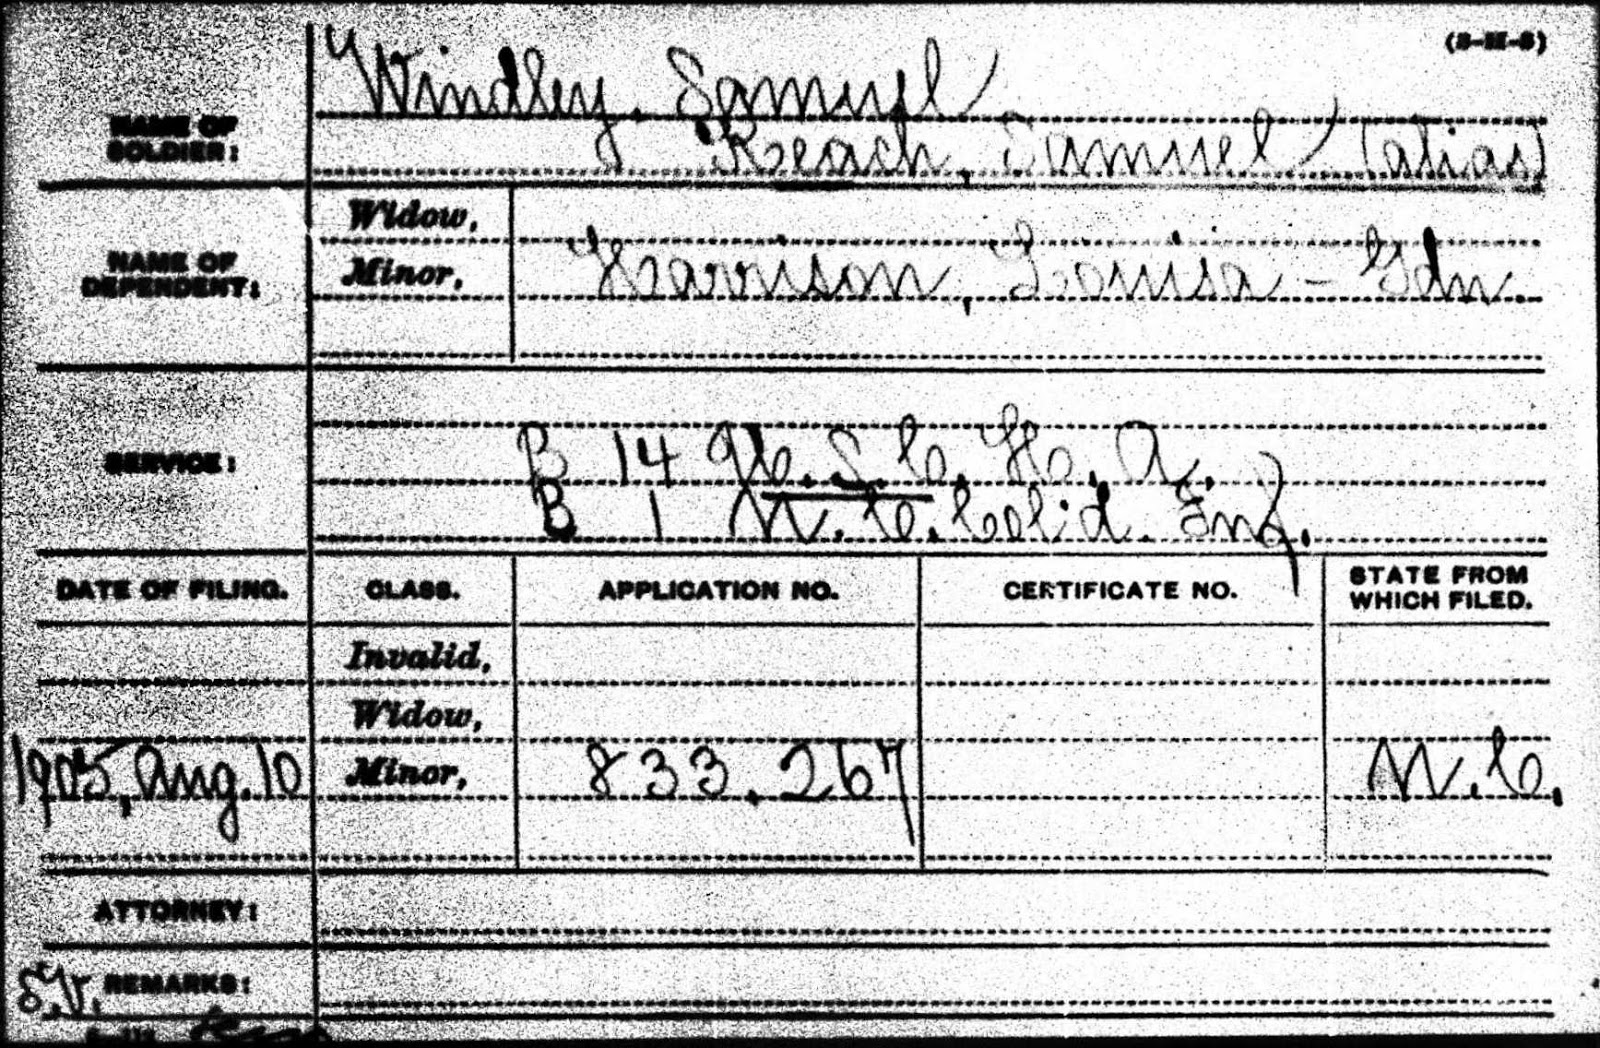 (3-II-3)
Windley, Samuel
NAME OF
SOLDIER:
Keach, Samuel (alias)
Widow,
NAME OF
DEPENDENT:
Minor, Harrison, Louisa - Gdn.
SERVICE:
B 14 U.S.C.H.A.
B 1 N.C. Col'd. Inf.
DATE OF FILING. CLASS. APPLICATION NO. CERTIFICATE NO. STATE FROM
WHICH FILED.
Invalid,
Widow,
1905, Aug. 10 Minor, 833.267 N.C.
ATTORNEY:
S.V. REMARKS: